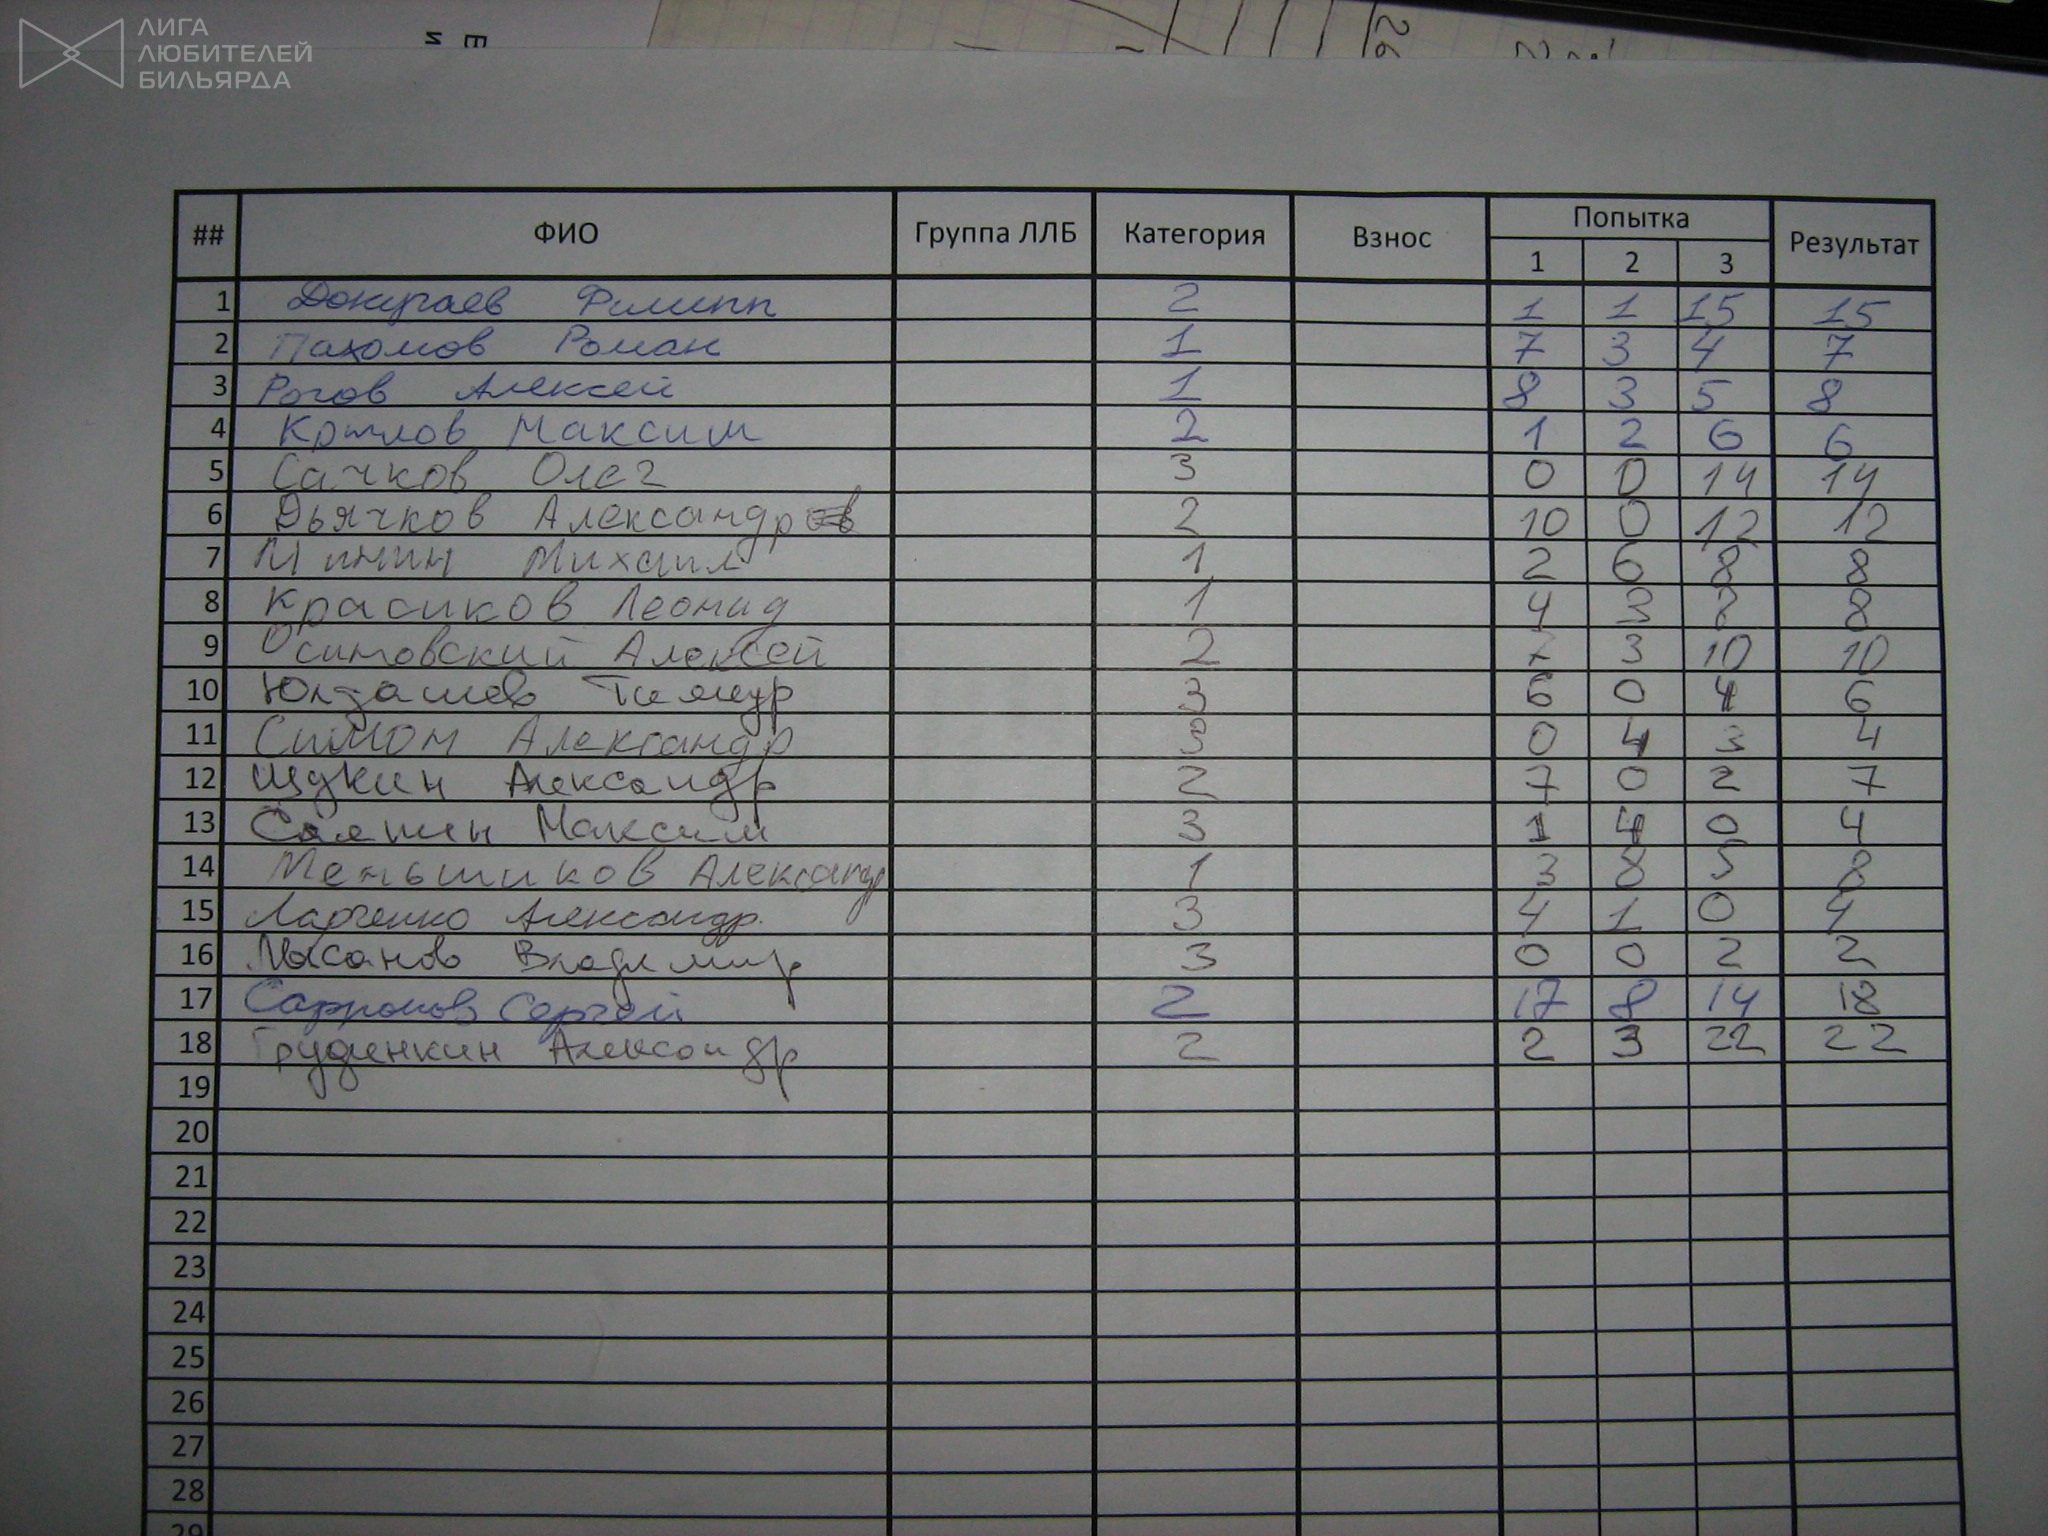 ЛИГА
ЛЮБИТЕЛЕЙ
БИЛЬЯРДА
## ФИО Группа ЛЛБ Категория Взнос Попытка Результат
1 2 3
1 Докучаев Филипп 2 1 1 15 15
2 Пахомов Роман 1 7 3 4 7
3 Рогов Алексей 1 8 3 5 8
4 Крылов Максим 2 1 2 6 6
5 Сачков Олег 3 0 0 14 14
6 Дьячков Александр 2 10 0 12 12
7 Минин Михаил 1 2 6 8 8
8 Красиков Леонид 1 4 3 8 8
9 Осиповский Алексей 2 7 3 10 10
10 Юлдашев Тимур 3 6 0 4 6
11 Симон Александр 3 0 4 3 4
12 Щукин Александр 2 7 0 2 7
13 Максим 3 1 4 0 4
14 Меньшиков Александр 1 3 8 5 8
15 Александр 3 4 1 0 4
16 Владимир 3 0 0 2 2
17 Сергей 2 17 8 14 18
18 Груденкин Александр 2 2 3 22 22
19
20
21
22
23
24
25
26
27
28
29